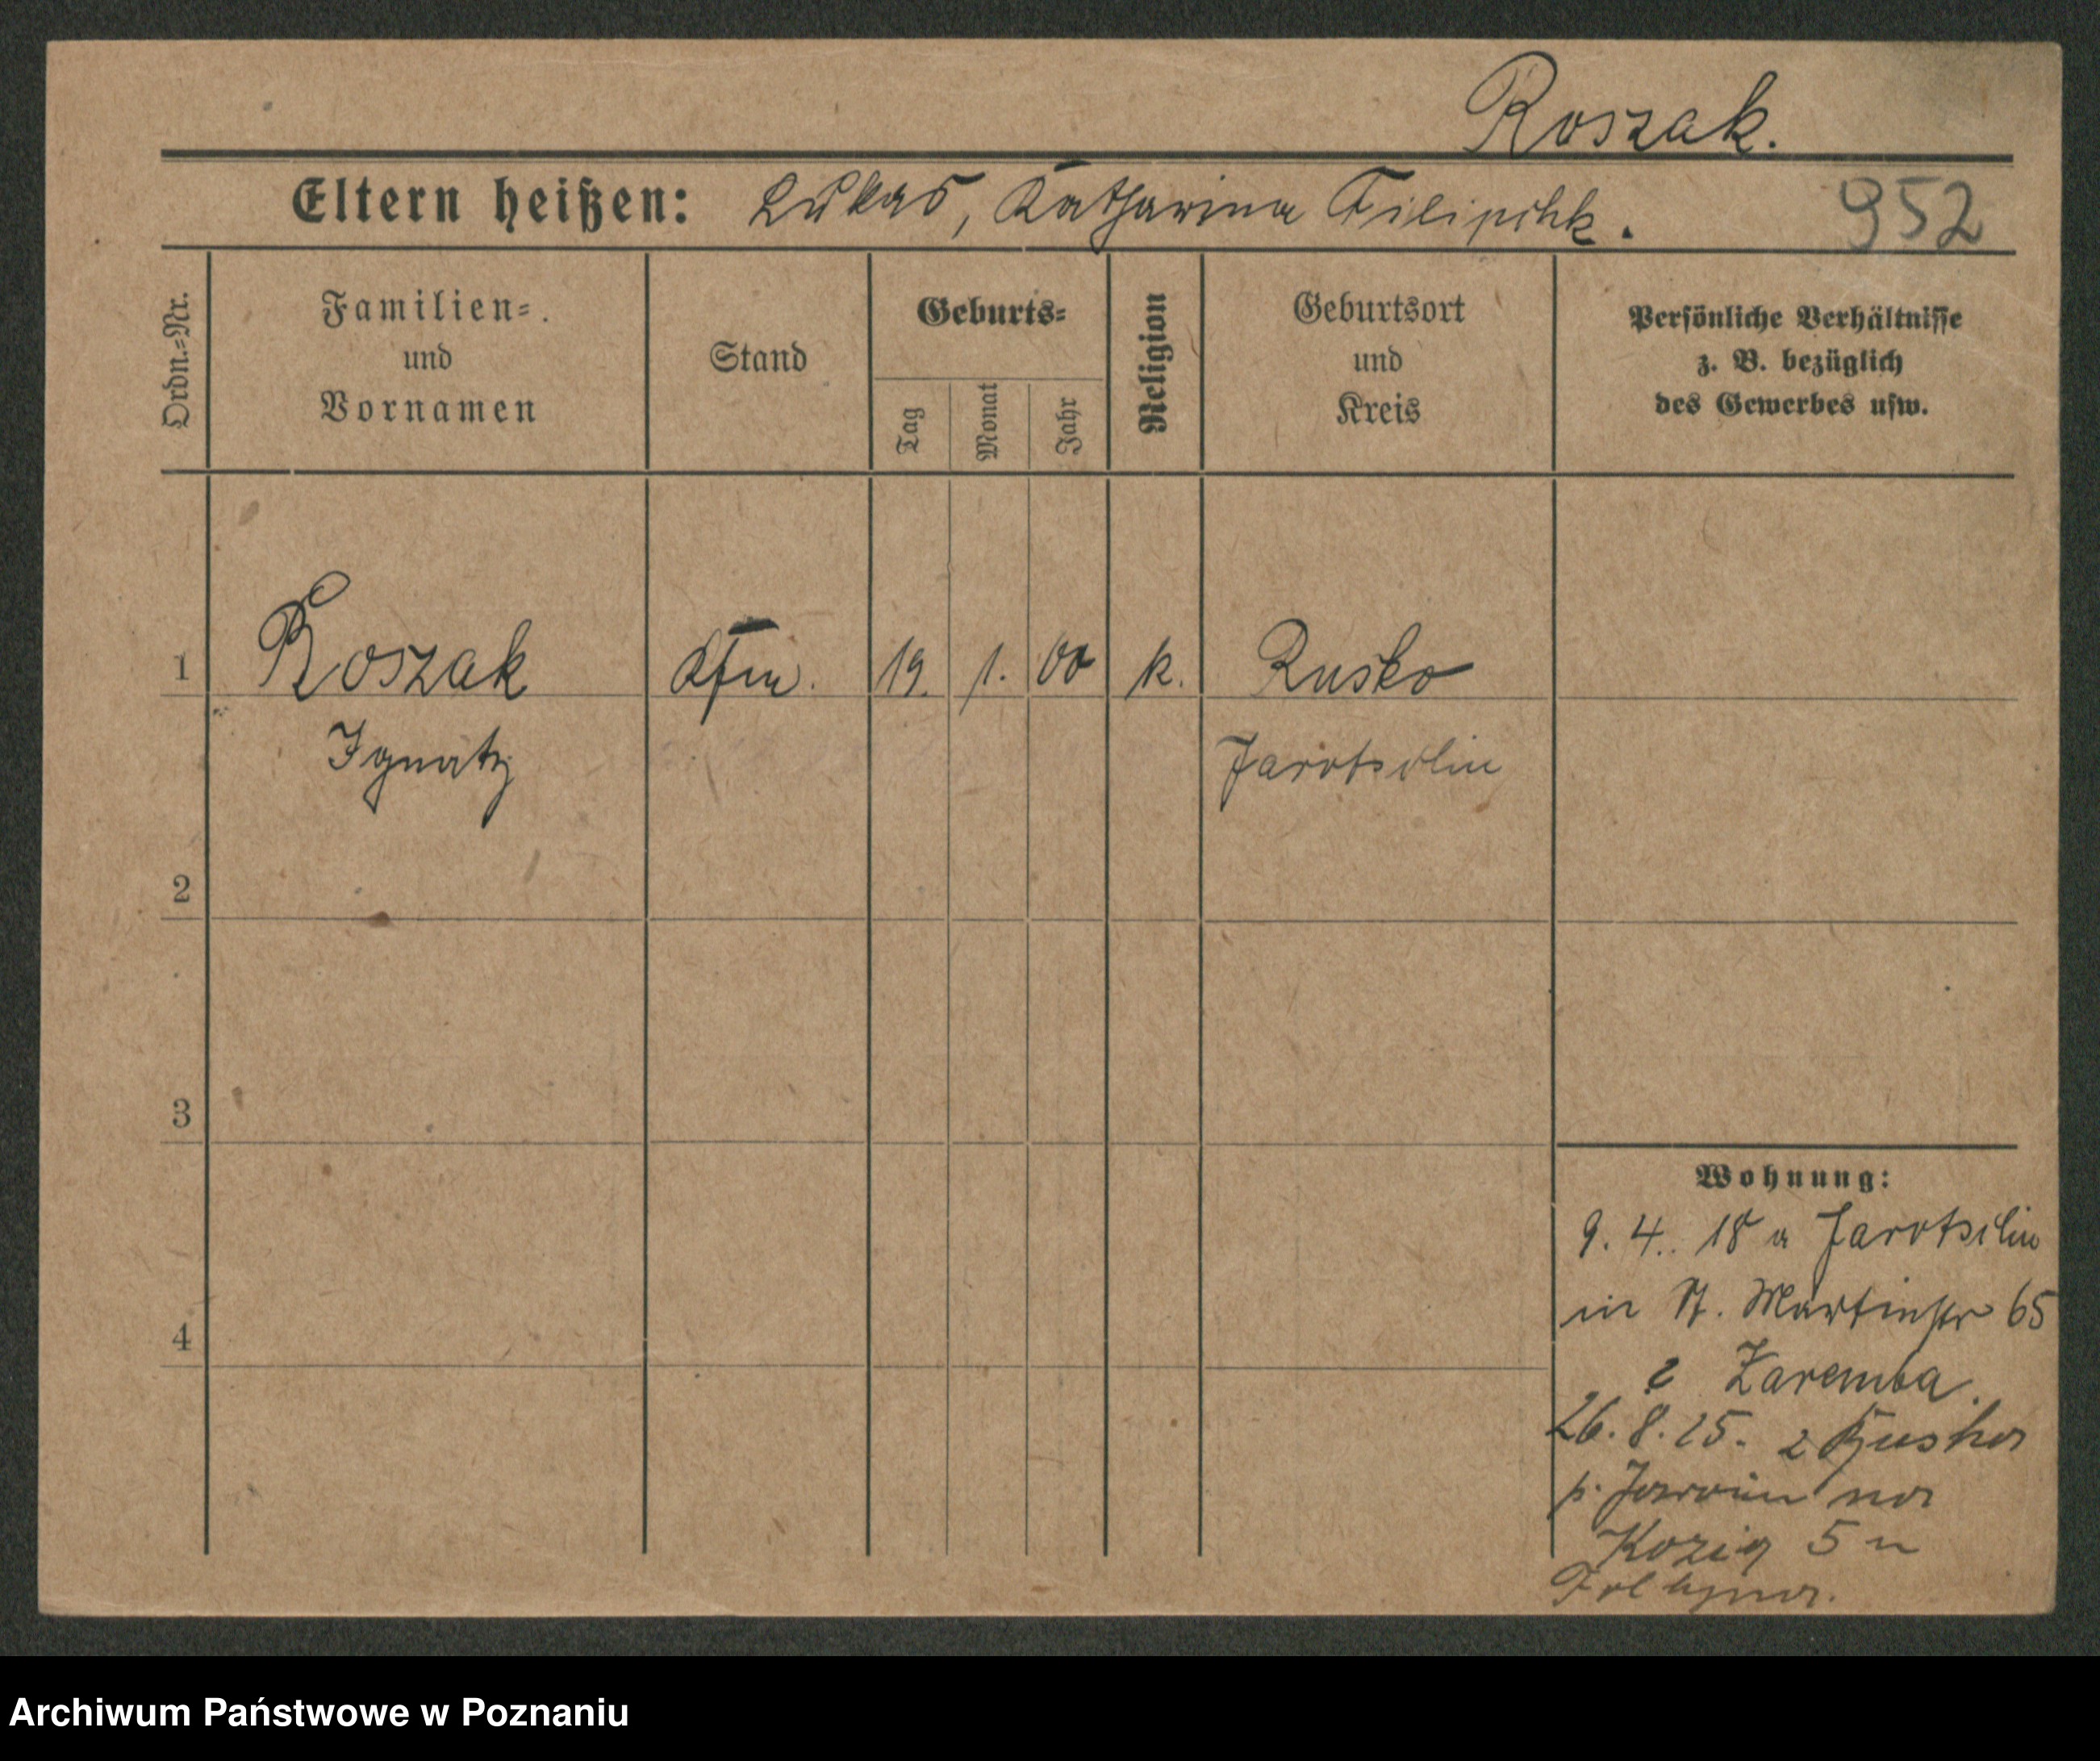 Roszak.
Eltern heißen: Lukas, Katharina
952
Ordn.-Nr.
Familien-
und
Vornamen
Stand
Geburts-
Tag
Monat
Jahr
Religion
Geburtsort
und
Kreis
Persönliche Verhältnisse
z. B. bezüglich
des Gewerbes usw.
1 Roszak Kfm. 19. 1. 00 k. Rusko
Ignatz Jarotschin
2
3
4
Wohnung:
9. 4. 18 a Jarotschin
in St. Martinstr 65
Zaremba.
26. 8. 25. z
p. Jarocin na
5